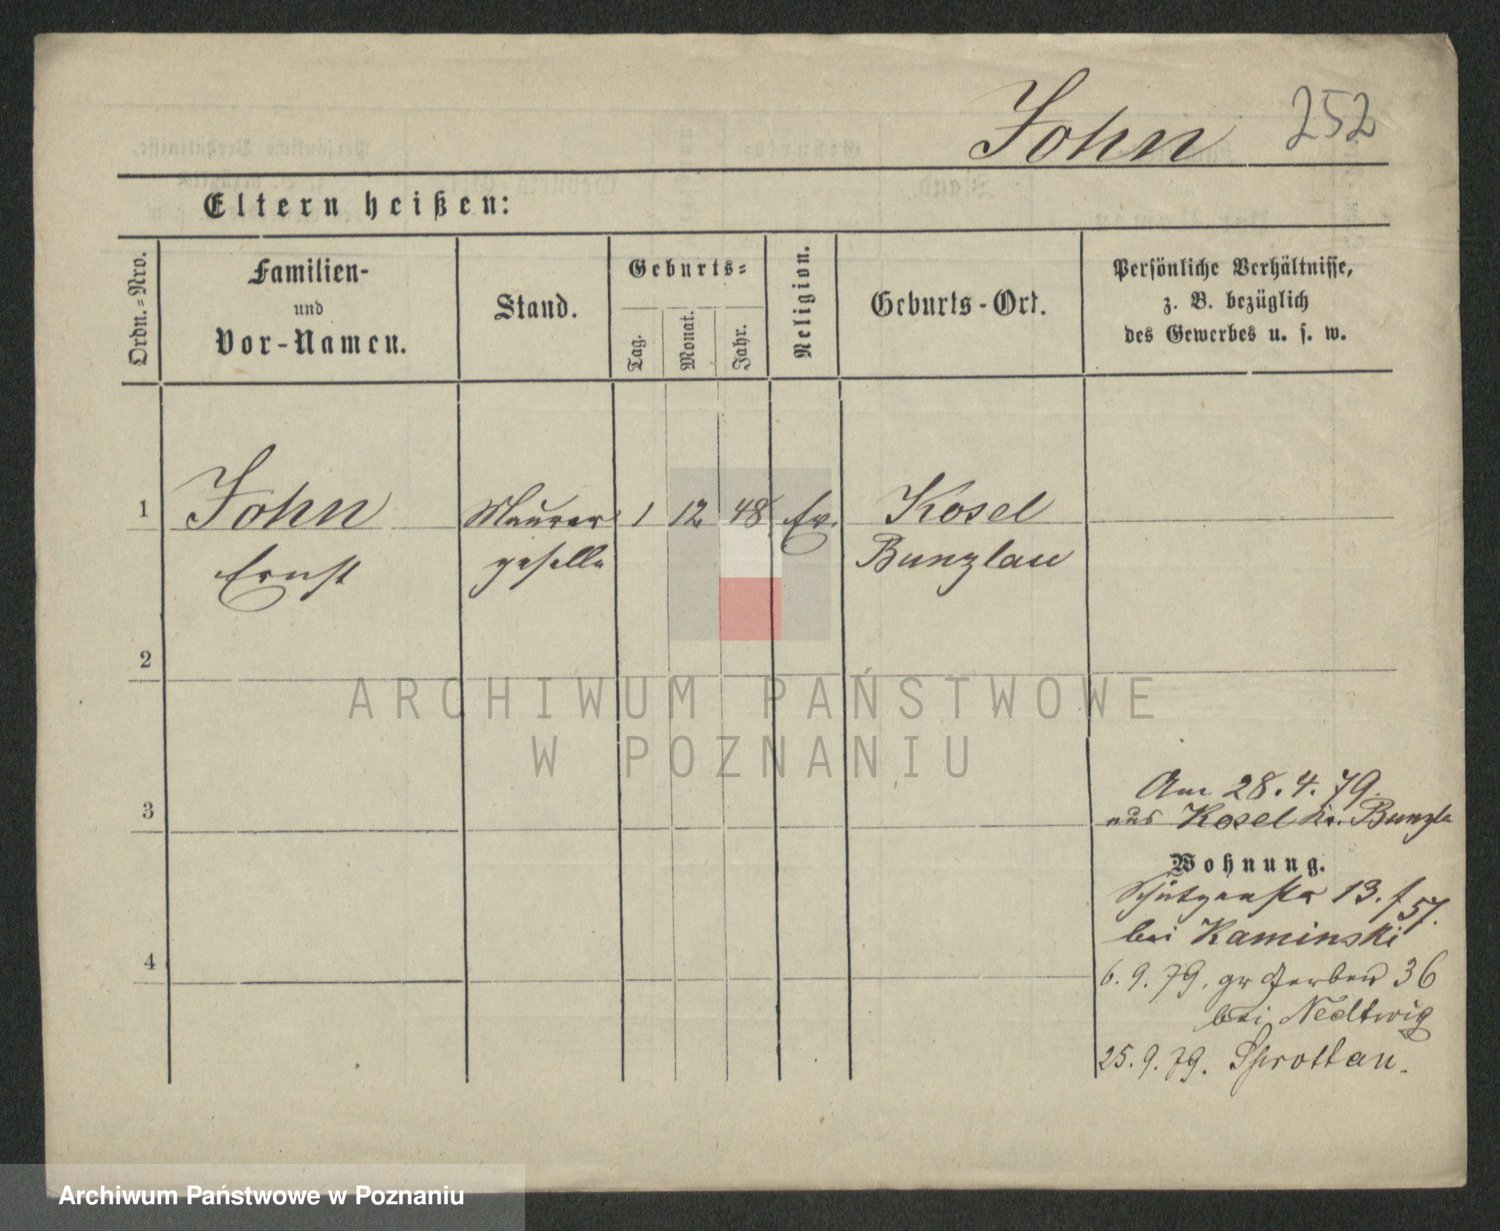 John 252
Eltern heißen:
Ordn.=Nro.
Familien-
und
Vor-Namen.
Stand.
Geburts=
Tag.
Monat.
Jahr.
Religion.
Geburts-Ort.
Persönliche Verhältnisse,
z. B. bezüglich
des Gewerbes u. s. w.
1 John Maurer 1 12 48 Ev. Kosel
Ernst geselle Bunzlau
2
3
4
Am 28.4.79.
aus Kosel Kr. Bunzla
Wohnung.
Schützenstr 13. f 57.
bei Kaminski
6.9.79. gr Gerber 36
bei Nedtwig
25.9.79. Sprottau.
ARCHIWUM PAŃSTWOWE
W POZNANIU
Archiwum Państwowe w Poznaniu